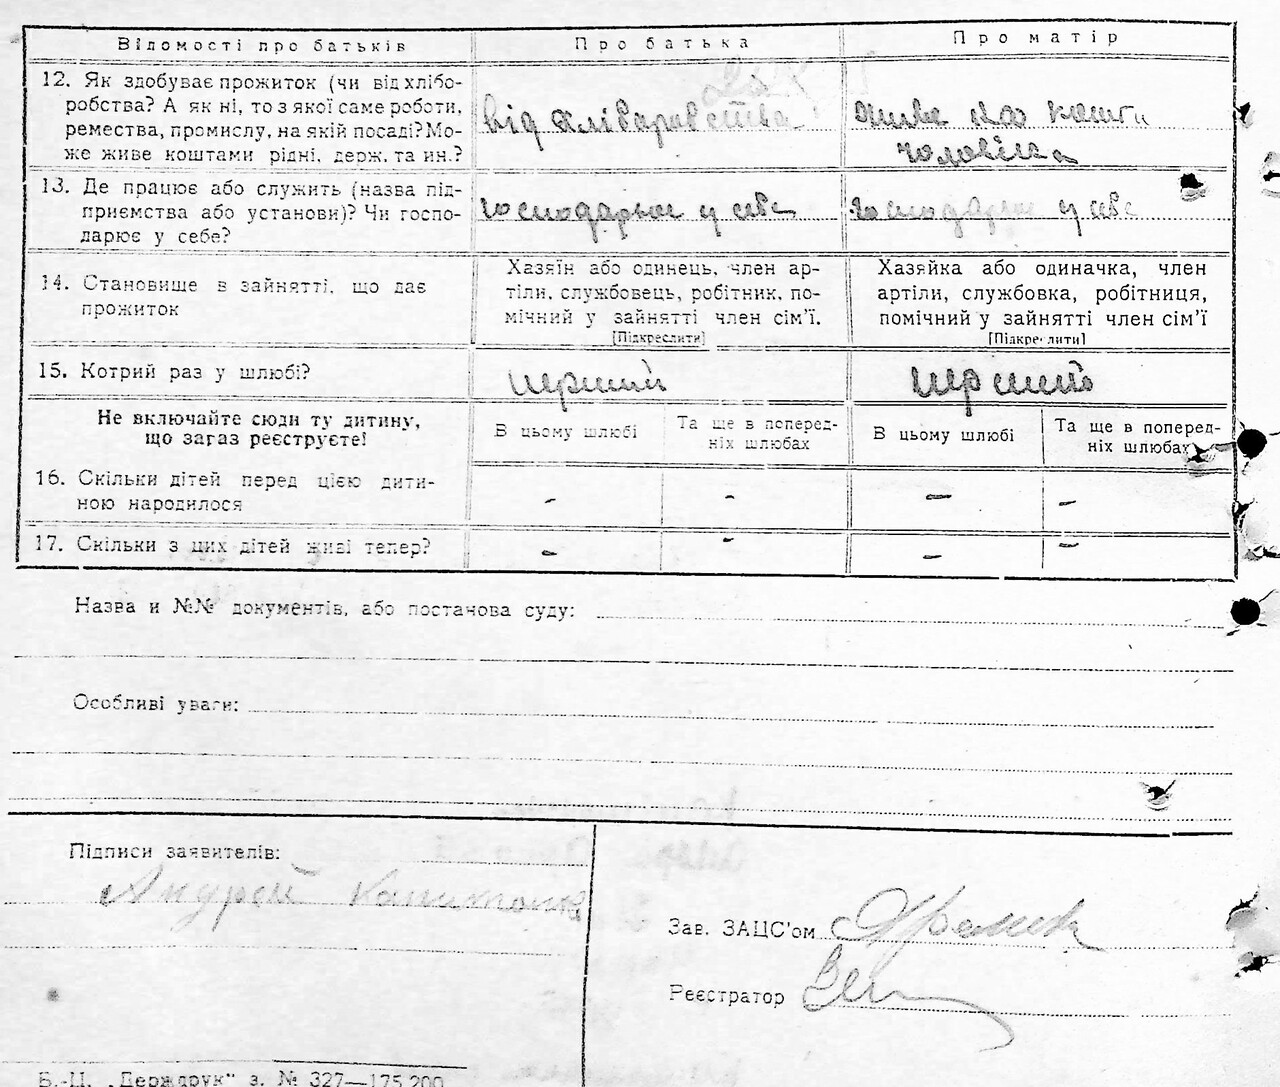 Відомості про батьків
Про батька
Про матір
12. Як здобуває прожиток (чи від хлібо-
робства? А як ні, то з якої саме роботи,
ремества, промислу, на якій посаді? Мо-
же живе коштами рідні, держ. та ин.?
від хліборобства
живе на кошти
чоловіка
13. Де працює або служить (назва під-
приємства або установи)? Чи госпо-
дарює у себе?
господарює у себе
господарює у себе
14. Становище в зайнятті, що дає
прожиток
Хазяїн або одинець, член ар-
тіли, службовець, робітник, по-
мічний у зайнятті член сім'ї.
[Підкреслити]
Хазяйка або одиначка, член
артіли, службовка, робітниця,
помічний у зайнятті член сім'ї
[Підкреслити]
15. Котрий раз у шлюбі?
перший
перший
Не включайте сюди ту дитину,
що загаз реєструєте!
В цьому шлюбі
Та ще в поперед-
ніх шлюбах
В цьому шлюбі
Та ще в поперед-
ніх шлюбах
16. Скільки дітей перед цією дити-
ною народилося
- - - -
17. Скільки з цих дітей живі тепер?
- - - -
Назва и №№ документів, або постанова суду:
Особливі уваги:
Підписи заявителів:
Андрей
Зав. ЗАЦС'ом
Реєстратор
Б.-Ц. „Держдрук" з. № 327—175.200